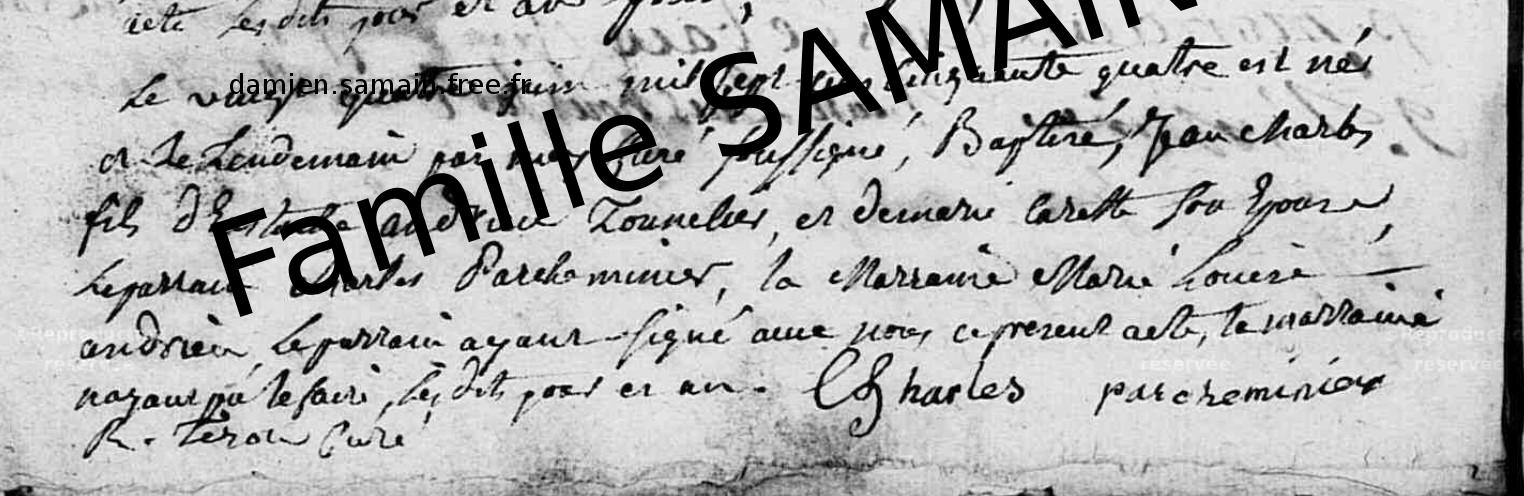 acte les dits jour et an
Le vingt quatre juin mil sept cens cinquante quatre est né
damien.samain.free.fr
Famille SAMAIN
et le Lendemain par nous curé soussigné, Baptisé, Jean charles
fils d'Eustache andrieu Tonnelier, et de marie carette son Epouse,
Le parrain charles Parcheminier, la Marraine Marie Louise
andrieu, Le parrain ayant signé avec nous ce present acte, la marraine
n'ayant pû le faire, les dits jour et an. Charles parcheminier
R. curé